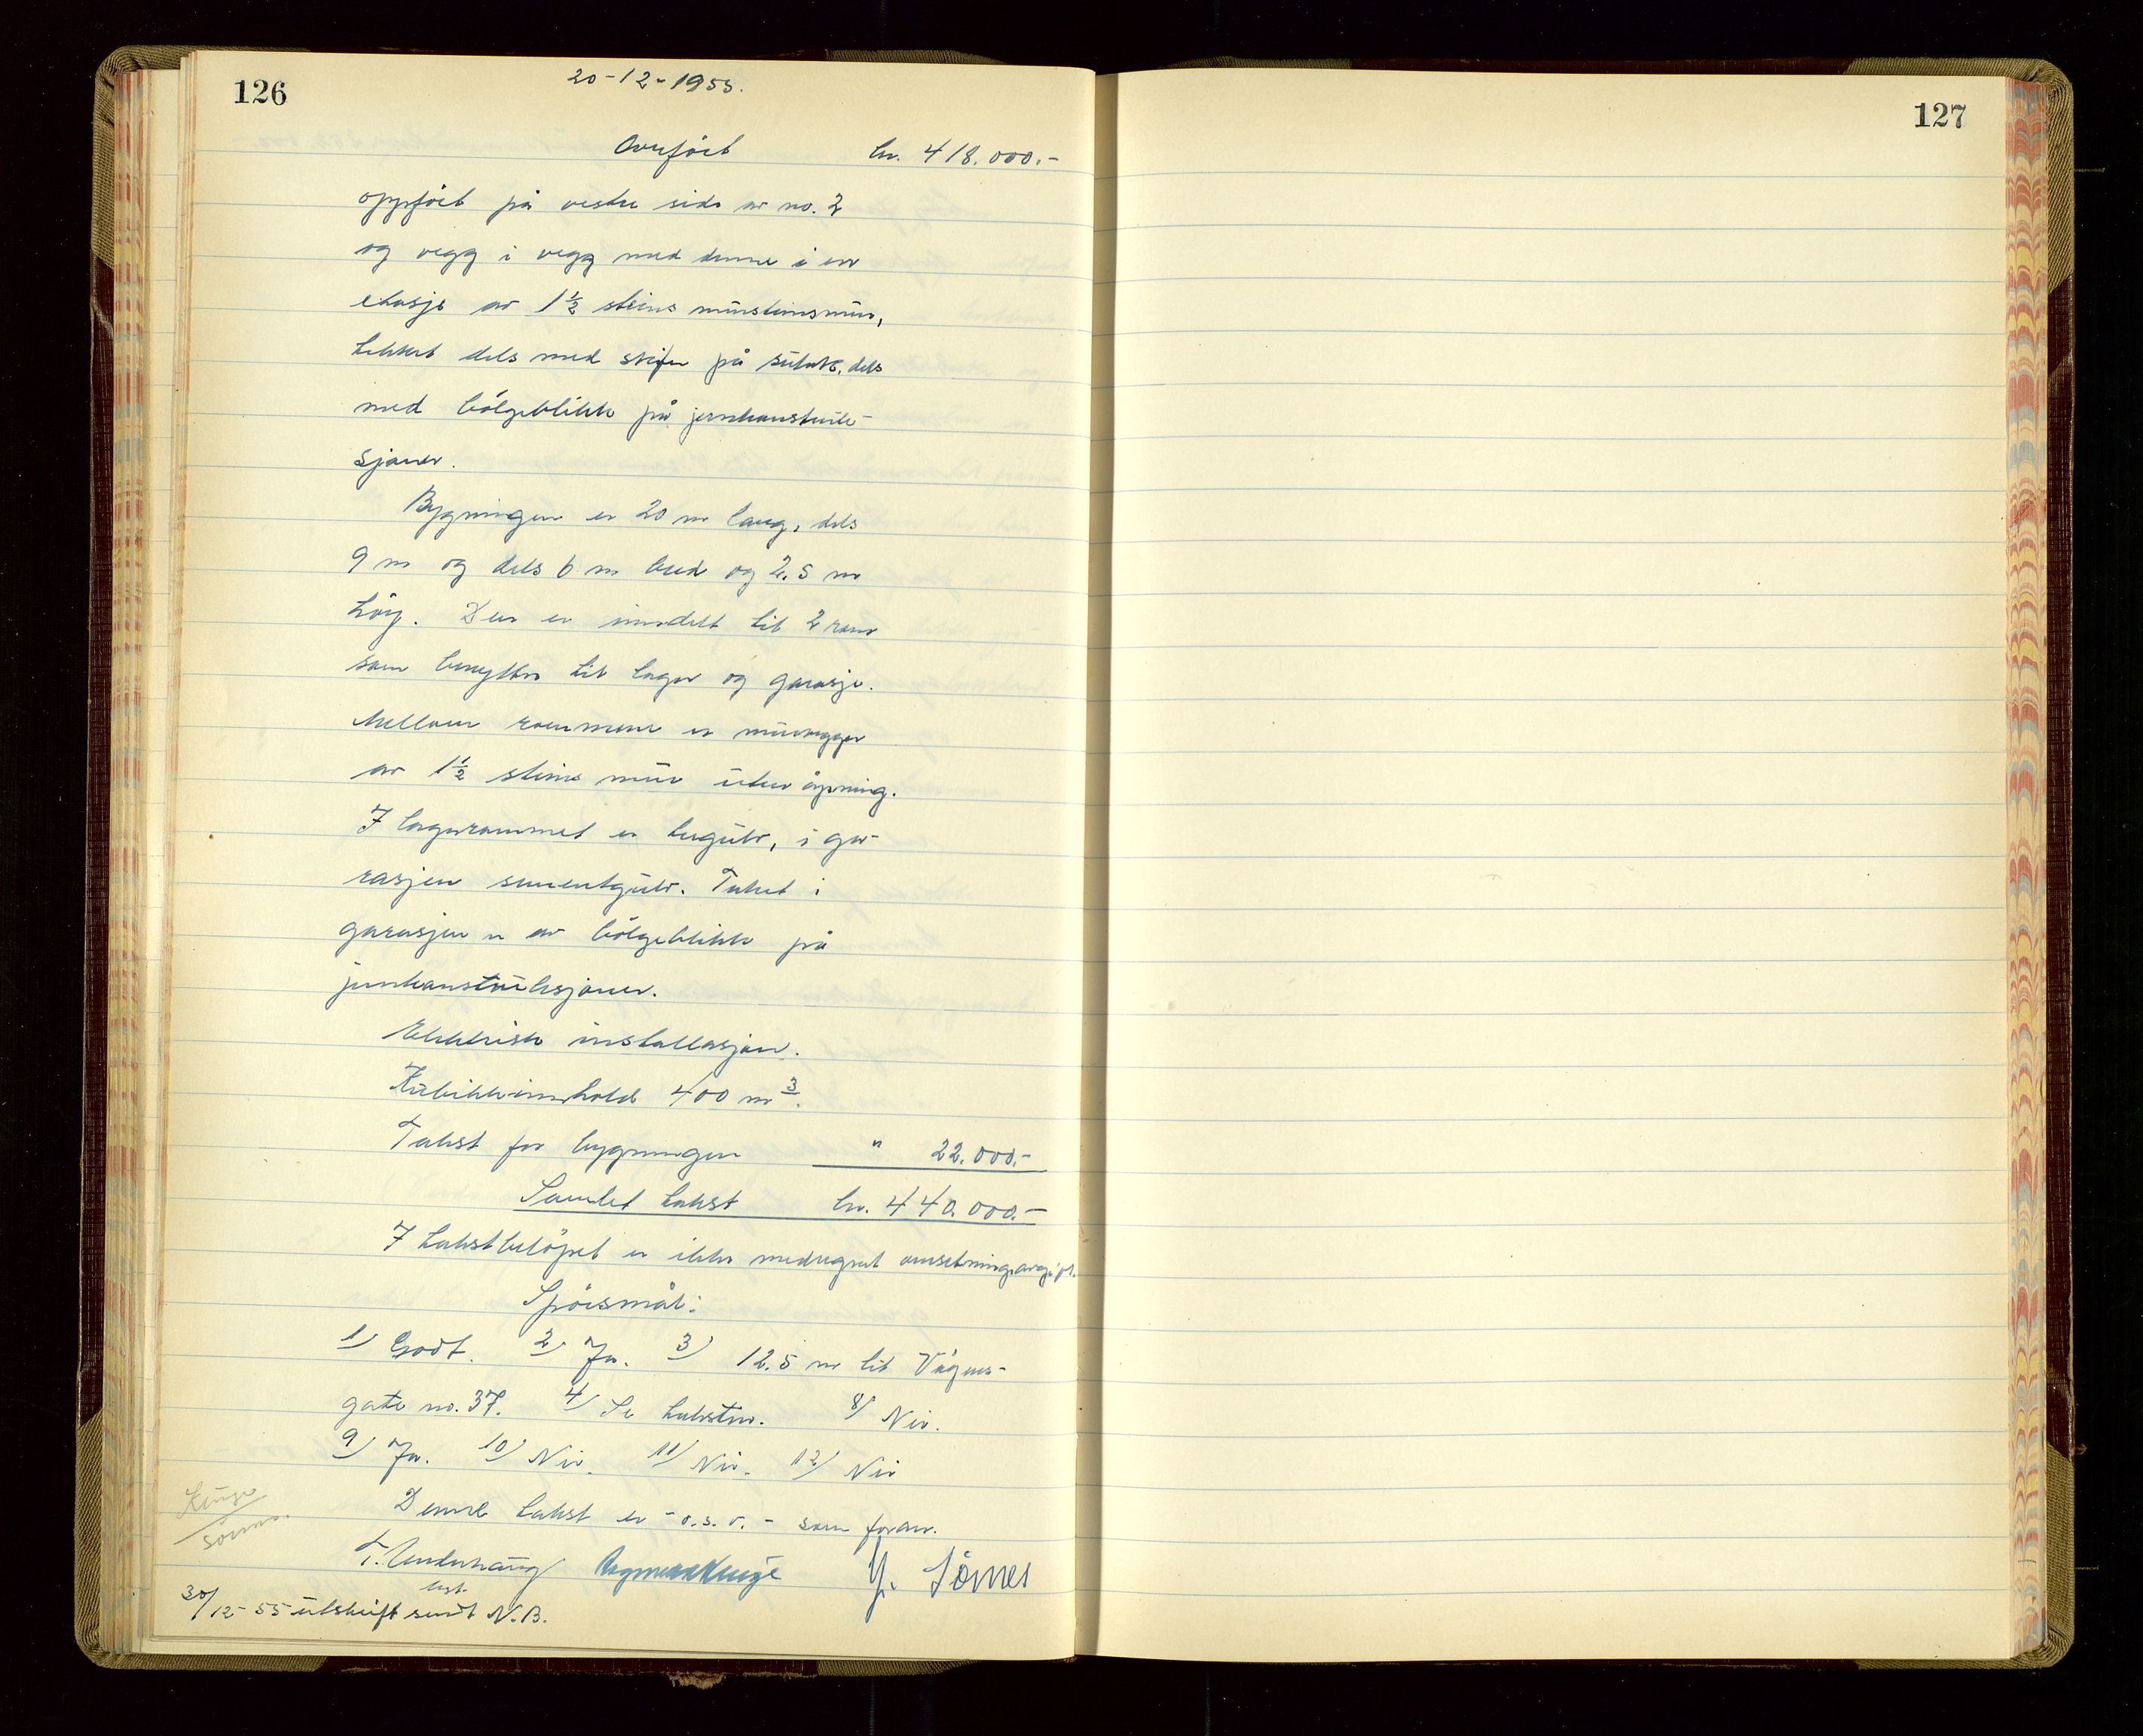 126
20-12-1955.
Overført kr. 418.000.-
oppført på vestre side av no. 2
og vegg i vegg med denne i en
etasje av 1½ steins mursteinsmur,
tekket dels med skifer på sutak, dels
med bølgeblikk på jernkonstruk-
sjoner.
Bygningen er 20 m lang, dels
9 m og dels 6 m bred og 2.5 m
høy. Den er inndelt til 2 rom
som benyttes til lager og garasje.
Mellom rommene er murvegger
av 1½ steins mur uten åpning.
I lagerrommet er tregulv, i ga-
rasjen sementgulv. Taket i
garasjen er av bølgeblikk på
jernkonstruksjoner.
Elektrisk installasjon.
Kubikkinnhold 400 m³.
Takst for bygningen " 22.000.-
Samlet takst kr. 440.000.-
I takstbeløpet er ikke medregnet omsetningsavgift.
Spørsmål:
1/ Godt. 2/ Ja. 3/ 12.5 m til Vågens-
gate no. 37. 4/ Se taksten. 8/ Nei.
9/ Ja. 10/ Nei. 11/ Nei. 12/ Nei
Denne takst er - o.s.v. - som foran.
Kluge
Sømes.
T. Underhaug Ragnvald Kluge Y. Sømes
30/12-55 utskrift sendt N.B.
127